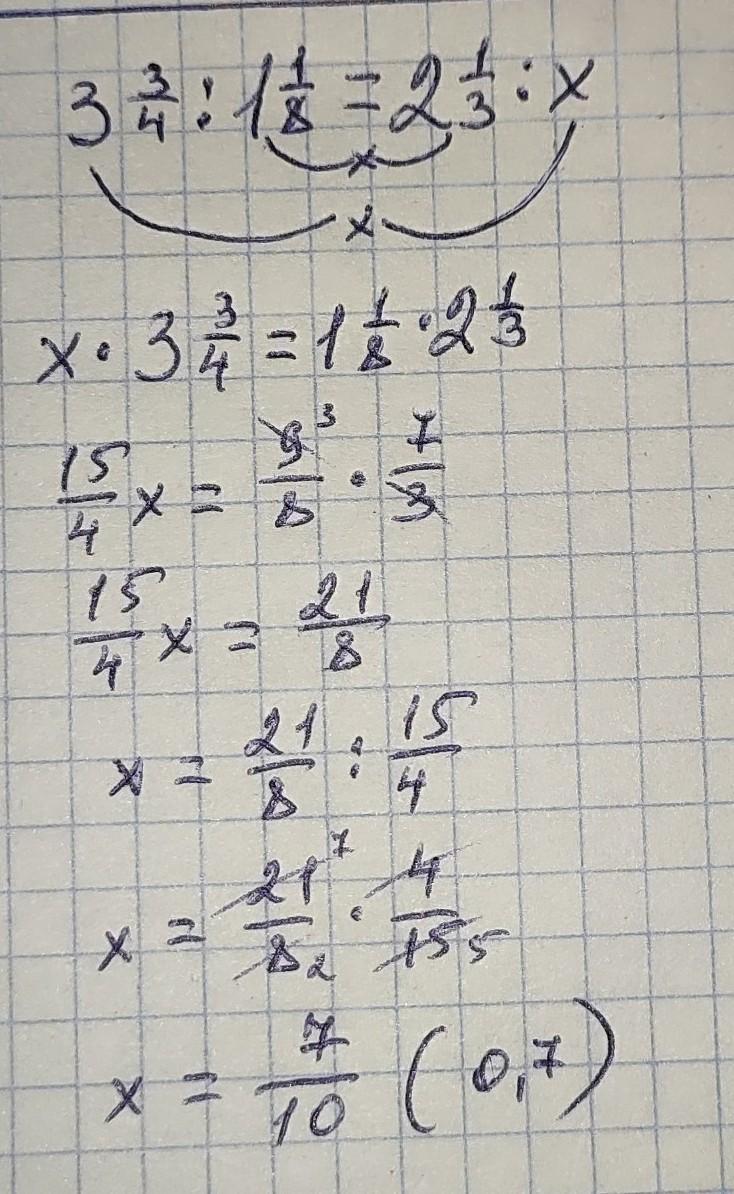 3 3/4 : 1 1/8 = 2 1/3 : x
x
x
x · 3 3/4 = 1 1/8 · 2 1/3
15/4 x = 9/8 3 · 7/3
15/4 x = 21/8
x = 21/8 : 15/4
x = 21 7/8 2 · 4/15 5
x = 7/10 (0,7)